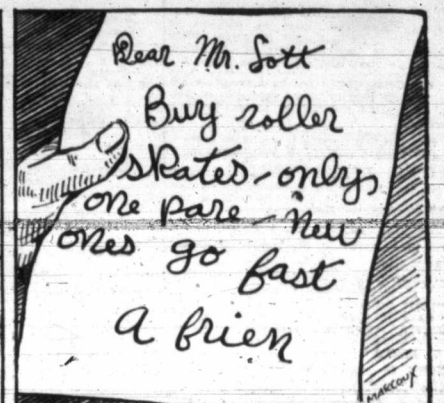 Dear Mr. Sott
Buy roller
skates - only
one pare - new
ones go fast
A frien
MARCOUX